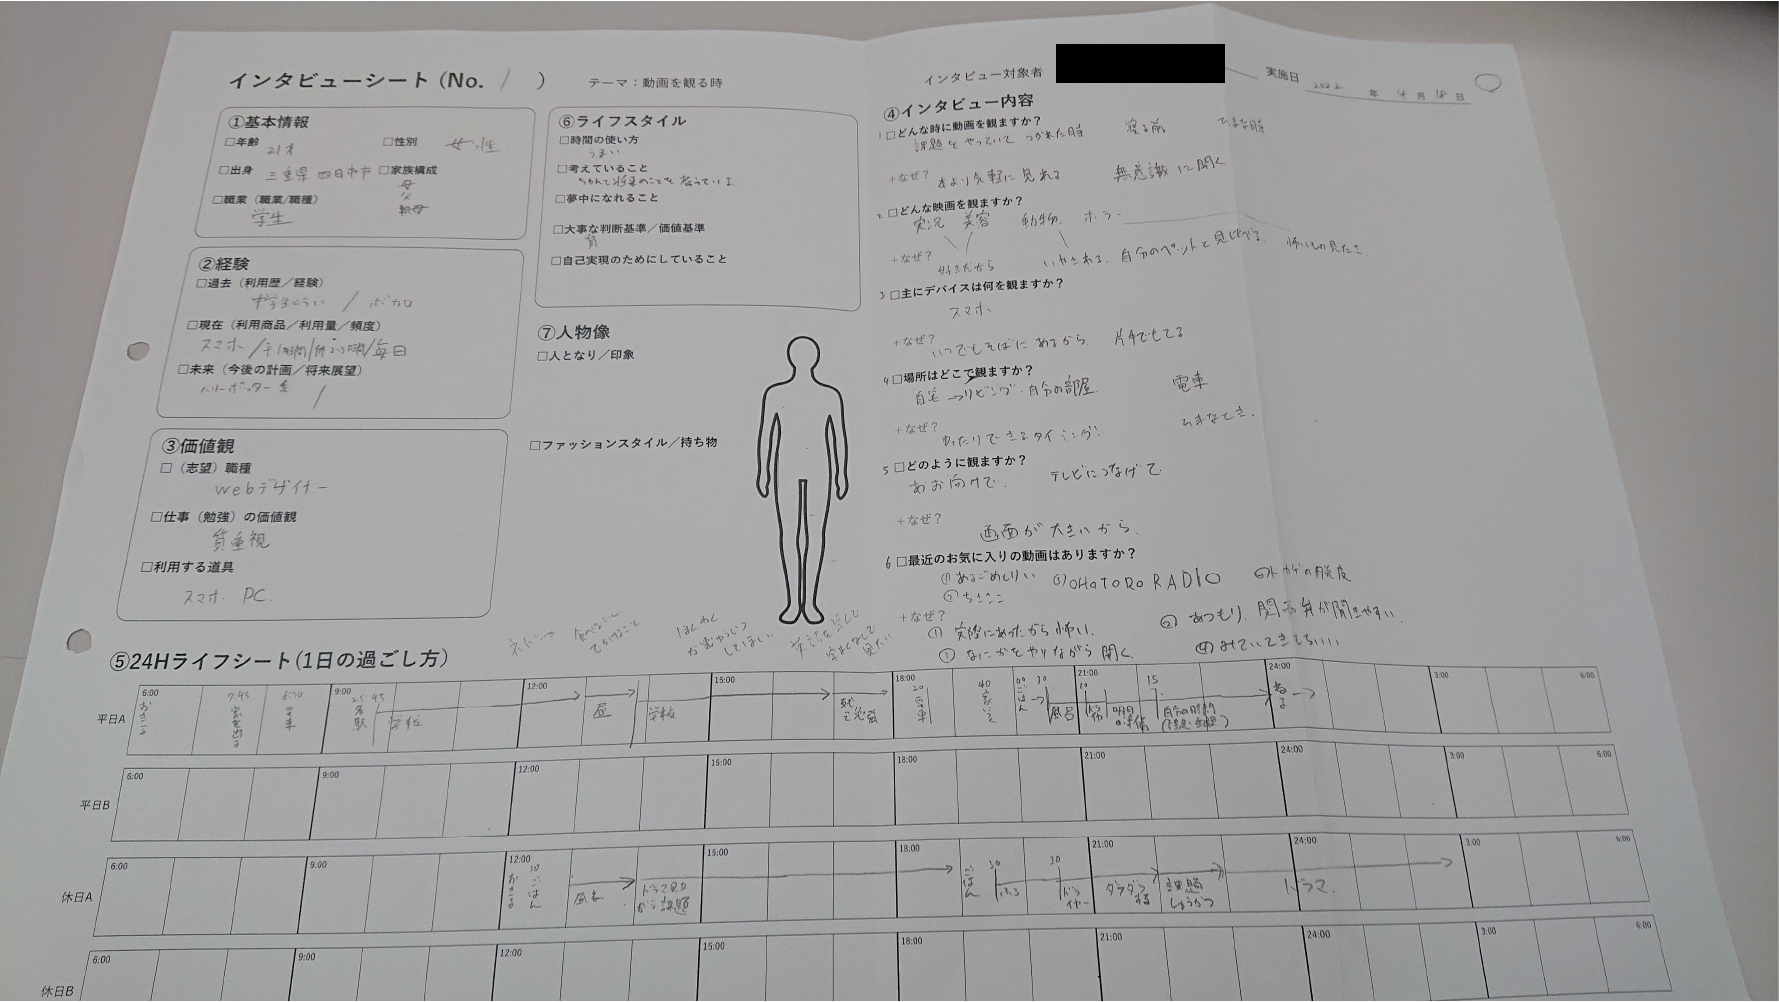 インタビューシート（No. 1 ）
テーマ：動画を観る時
インタビュー対象者
実施日
2022 年 4 月 18 日
①基本情報
□年齢
21才
□性別
女性
□出身 三重県 四日市市
□家族構成
母
父
□職業（職業/職種）
学生
②経験
□過去（利用歴／経験）
中学生くらい / ボカロ
□現在（利用商品／利用量／頻度）
スマホ /平1時間/休2~3時間/毎日
□未来（今後の計画／将来展望）
ハリーポッターを /
③価値観
□（志望）職種
webデザイナー
□仕事（勉強）の価値観
質重視
□利用する道具
スマホ PC.
⑥ライフスタイル
□時間の使い方
うまい
□考えていること
ちゃんと将来のことを考っている.
□夢中になれること
□大事な判断基準／価値基準
質
□自己実現のためにしていること
⑦人物像
□人となり／印象
□ファッションスタイル／持ち物
④インタビュー内容
1 □どんな時に動画を観ますか？
課題をやっていて つかれた時 寝る前 ひまな時
+なぜ? 本より気軽に見れる. 無意識に開く
2 □どんな映画を観ますか？
実況 美容 動物. ホラー
+なぜ?
好きだから いやされる. 自分のペットと見比べる. 怖いもの見たさ.
3 □主にデバイスは何を観ますか？
スマホ
+なぜ? いつでもそばにあるから. 片手でもてる
4 □場所はどこで観ますか？
自宅→リビング・自分の部屋. 電車
+なぜ? ゆったりできるタイミング. ひまなとき.
5 □どのように観ますか？
あお向けで. テレビにつなげて
+なぜ?
画面が大きいから.
6 □最近のお気に入りの動画はありますか？
OHATORO RADIO
+なぜ?
① 実際にあったから怖い. ② あつもり. 関西弁が聞きやすい.
なにかをやりながら聞く. ④ みていてきもちいい
食べること
ほんやく
してほしい
英語を学んで
字幕なしで
見たい
⑤24Hライフシート(1日の過ごし方)
平日A
6:00 9:00 12:00 15:00 18:00 21:00 24:00 3:00 6:00
おきる 7:45 家を出る 8:30 電車 25 45 学校 昼 学校 20 電車 40 家につく 00 ごはん 30 風呂 10 明日の準備 15 自分の時間 ねる
平日B
6:00 9:00 12:00 15:00 18:00 21:00 24:00 3:00 6:00
休日A
6:00 9:00 12:00 15:00 18:00 21:00 24:00 3:00 6:00
おきる 10 ごはん 風呂 ドラマ見ながら課題 ごはん 30 ふろ 30 ドライヤー ダラダラする 課題しょうかつ ドラマ.
休日B
6:00 9:00 12:00 15:00 18:00 21:00 24:00 3:00 6:00